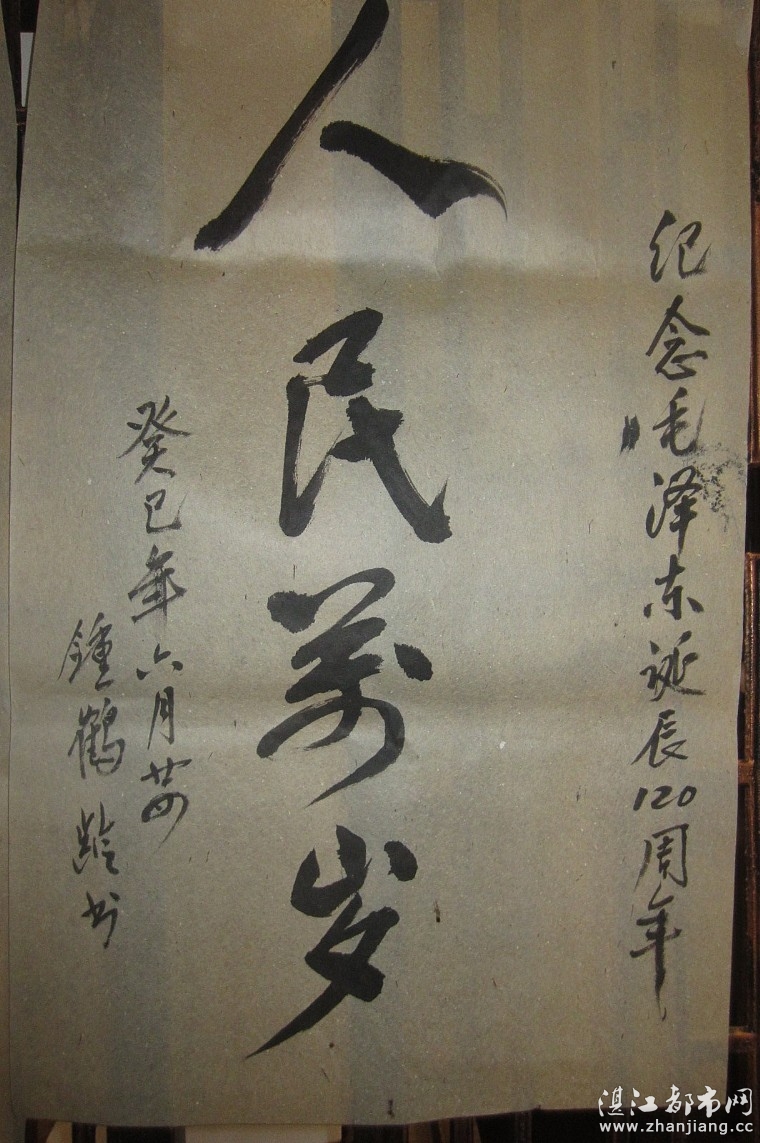 纪念毛泽东诞辰120周年
人民萬岁
癸巳年六月廿四
鍾鶴龄书
湛江都市网
www.zhanjiang.cc